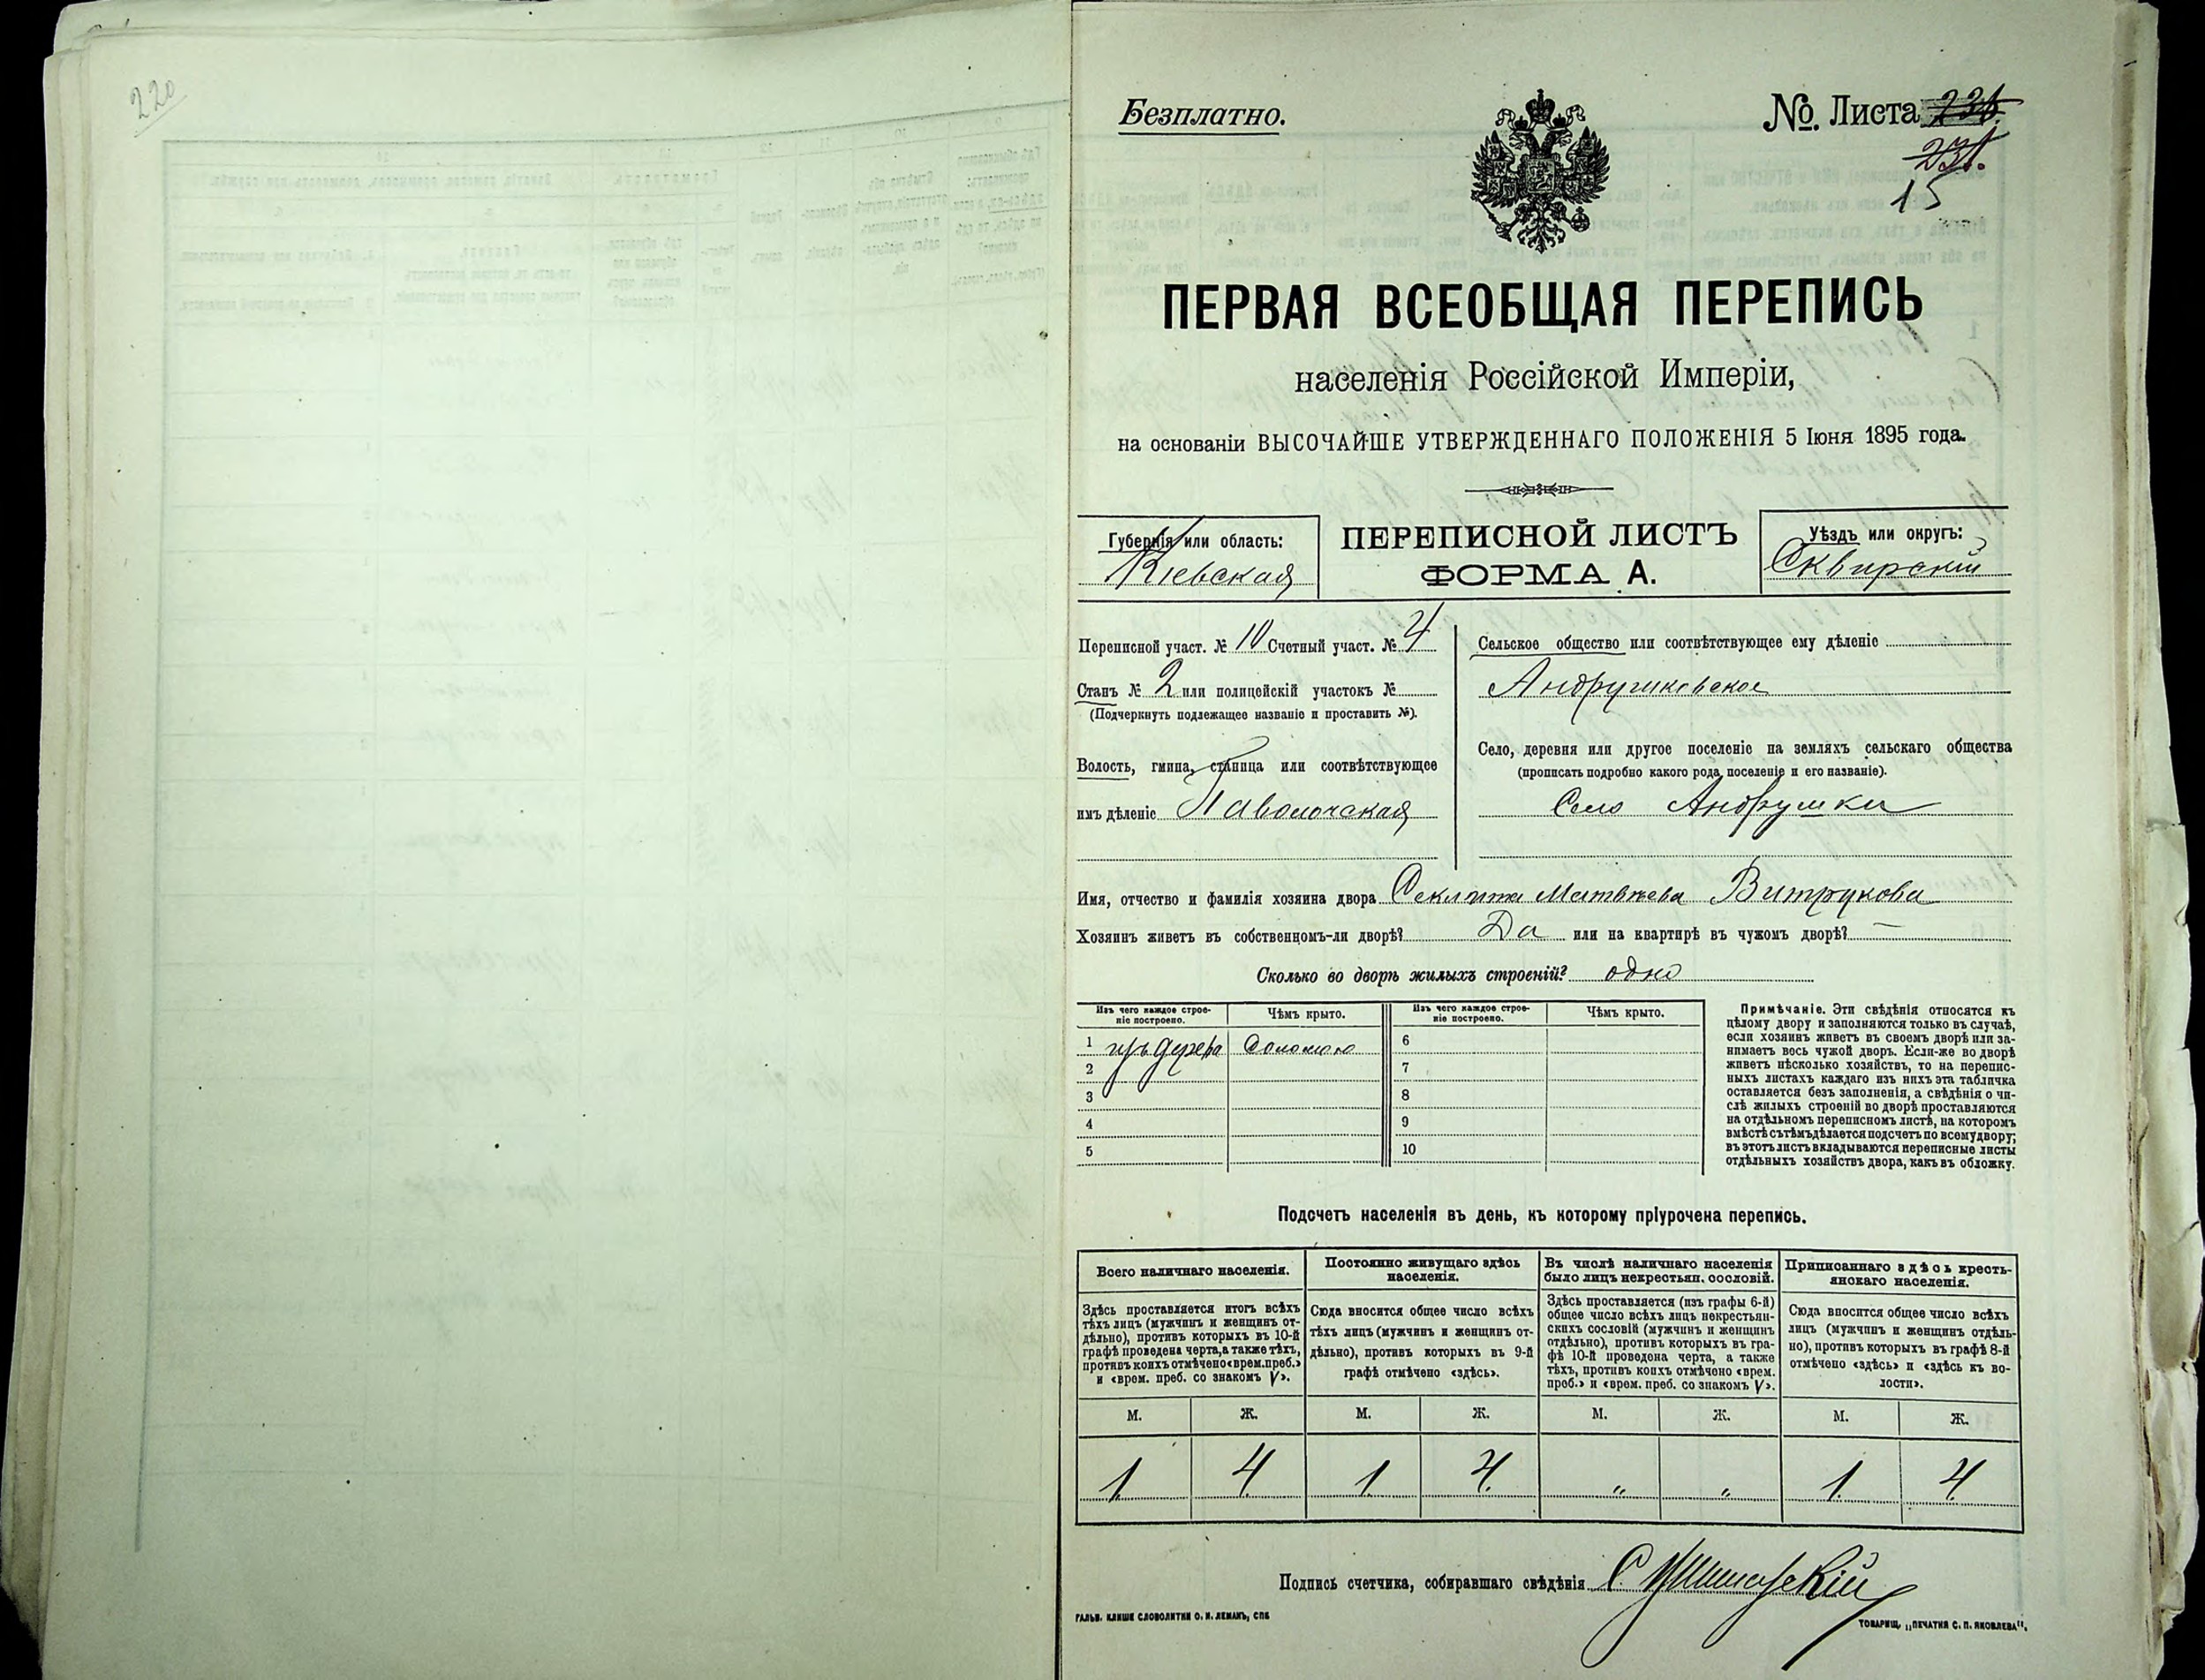 220
Безплатно.
№ Листа 231.
231.
15
ПЕРВАЯ ВСЕОБЩАЯ ПЕРЕПИСЬ
населенія Россійской Имперіи,
на основаніи ВЫСОЧАЙШЕ УТВЕРЖДЕННАГО ПОЛОЖЕНІЯ 5 Іюня 1895 года.
Губернія или область:
Кіевская
ПЕРЕПИСНОЙ ЛИСТЪ
ФОРМА А.
Уѣздъ или округъ:
Сквирскій
Переписной участ. № 10 Счетный участ. № 4
Станъ № 2 или полицейскій участокъ №
(Подчеркнуть подлежащее названіе и проставить №).
Волость, гмина, станица или соотвѣтствующее
имъ дѣленіе Паволочская
Сельское общество или соотвѣтствующее ему дѣленіе
Андрушковское
Село, деревня или другое поселеніе на земляхъ сельскаго общества
(прописать подробно какого рода поселеніе и его названіе).
Село Андрушки
Имя, отчество и фамилія хозяина двора Феклита Матвѣева Витрукова
Хозяинъ живетъ въ собственномъ-ли дворѣ? Да или на квартирѣ въ чужомъ дворѣ? —
Сколько во дворѣ жилыхъ строеній? одно
Изъ чего каждое строе-
ніе построено.
Чѣмъ крыто.
Изъ чего каждое строе-
ніе построено.
Чѣмъ крыто.
1 изъ дерева Соломою 6
2 7
3 8
4 9
5 10
Примѣчаніе. Эти свѣдѣнія относятся къ
цѣлому двору и заполняются только въ случаѣ,
если хозяинъ живетъ въ своемъ дворѣ или за-
нимаетъ весь чужой дворъ. Если-же во дворѣ
живетъ нѣсколько хозяйствъ, то на перепис-
ныхъ листахъ каждаго изъ нихъ эта табличка
оставляется безъ заполненія, а свѣдѣнія о чи-
слѣ жилыхъ строеній во дворѣ проставляются
на отдѣльномъ переписномъ листѣ, на которомъ
вмѣстѣ съ тѣмъ дѣлается подсчетъ по всему двору;
въ этотъ листъ вкладываются переписные листы
отдѣльныхъ хозяйствъ двора, какъ въ обложку.
Подсчетъ населенія въ день, къ которому пріурочена перепись.
Всего наличнаго населенія.
Здѣсь проставляется итогъ всѣхъ
тѣхъ лицъ (мужчинъ и женщинъ от-
дѣльно), противъ которыхъ въ 10-й
графѣ проведена черта, а также тѣхъ,
противъ коихъ отмѣчено «врем. преб.»
и «врем. преб. со знакомъ V».
Постоянно живущаго здѣсь
населенія.
Сюда вносится общее число всѣхъ
тѣхъ лицъ (мужчинъ и женщинъ от-
дѣльно), противъ которыхъ въ 9-й
графѣ отмѣчено «здѣсь».
Въ числѣ наличнаго населенія
было лицъ некрестьян. сословій.
Здѣсь проставляется (изъ графы 6-й)
общее число всѣхъ лицъ некрестьян-
скихъ сословій (мужчинъ и женщинъ
отдѣльно), противъ которыхъ въ гра-
фѣ 10-й проведена черта, а также
тѣхъ, противъ коихъ отмѣчено «врем.
преб.» и «врем. преб. со знакомъ V».
Приписаннаго здѣсь кресть-
янскаго населенія.
Сюда вносится общее число всѣхъ
лицъ (мужчинъ и женщинъ отдѣль-
но), противъ которыхъ въ графѣ 8-й
отмѣчено «здѣсь» и «здѣсь къ во-
лости».
М. Ж. М. Ж. М. Ж. М. Ж.
1. 4 1 4. „ „ 1. 4.
Подпись счетчика, собиравшаго свѣдѣнія С.
ГАЛЬВ. КЛИШЕ СЛОВОЛИТНИ О. И. ЛЕМАНЪ, СПБ
ТОВАРИЩ. „ПЕЧАТНЯ С. П. ЯКОВЛЕВА".